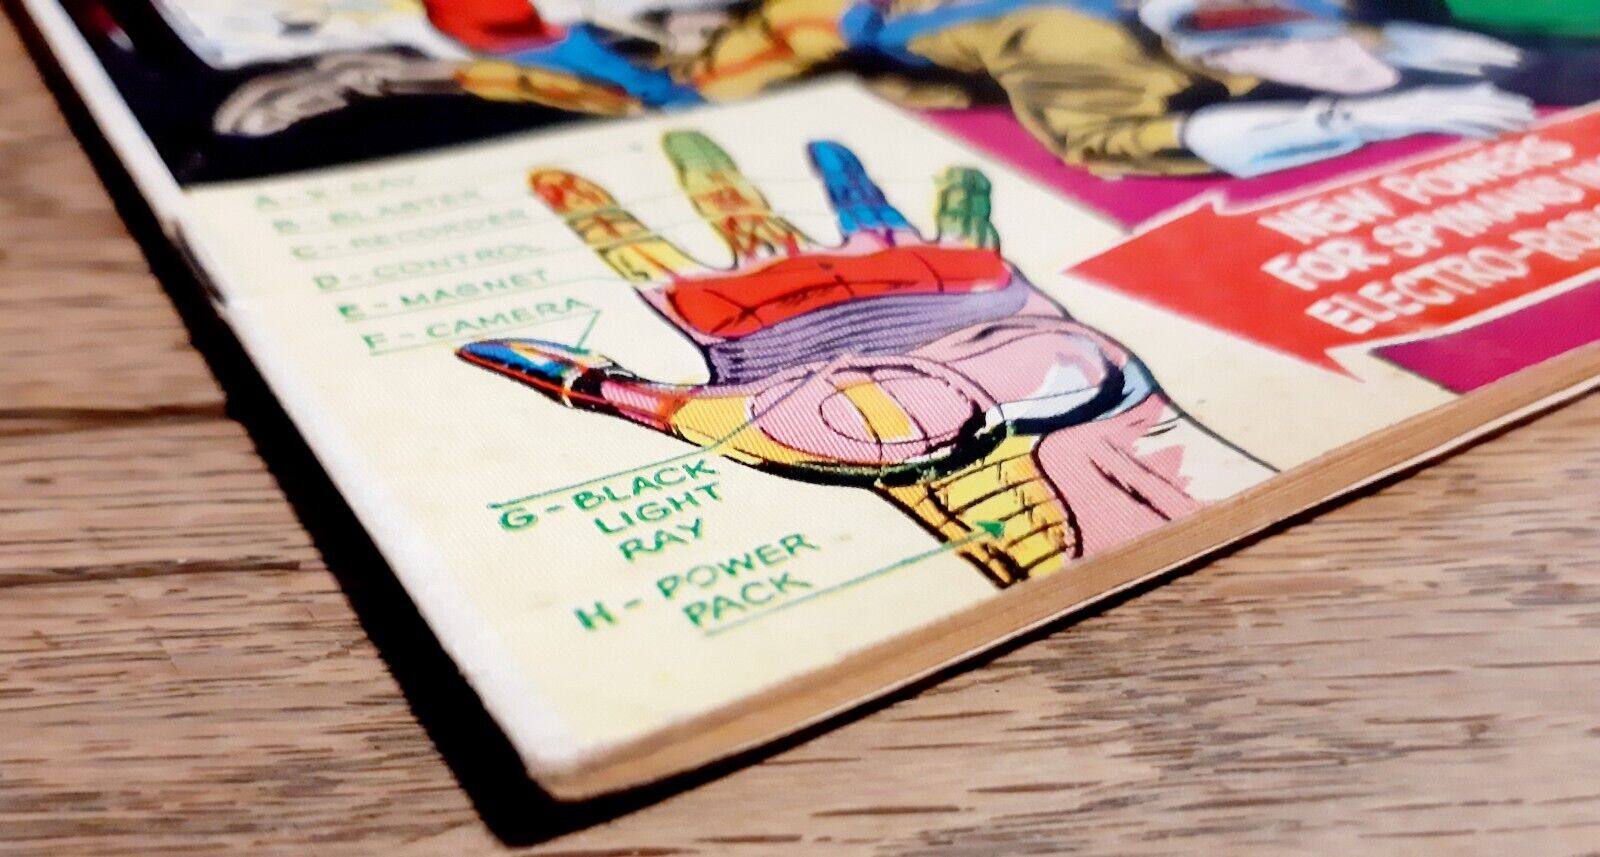 A - X-RAY
B - BLASTER
C - RECORDER
D - CONTROL
E - MAGNET
F - CAMERA
G - BLACK
LIGHT
RAY
H - POWER
PACK
NEW POWERS
FOR SPYMAN'S
ELECTRO-